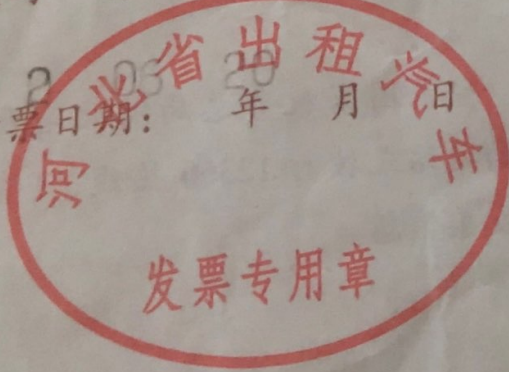 河北省出租汽车
票日期： 年 月 日
发票专用章